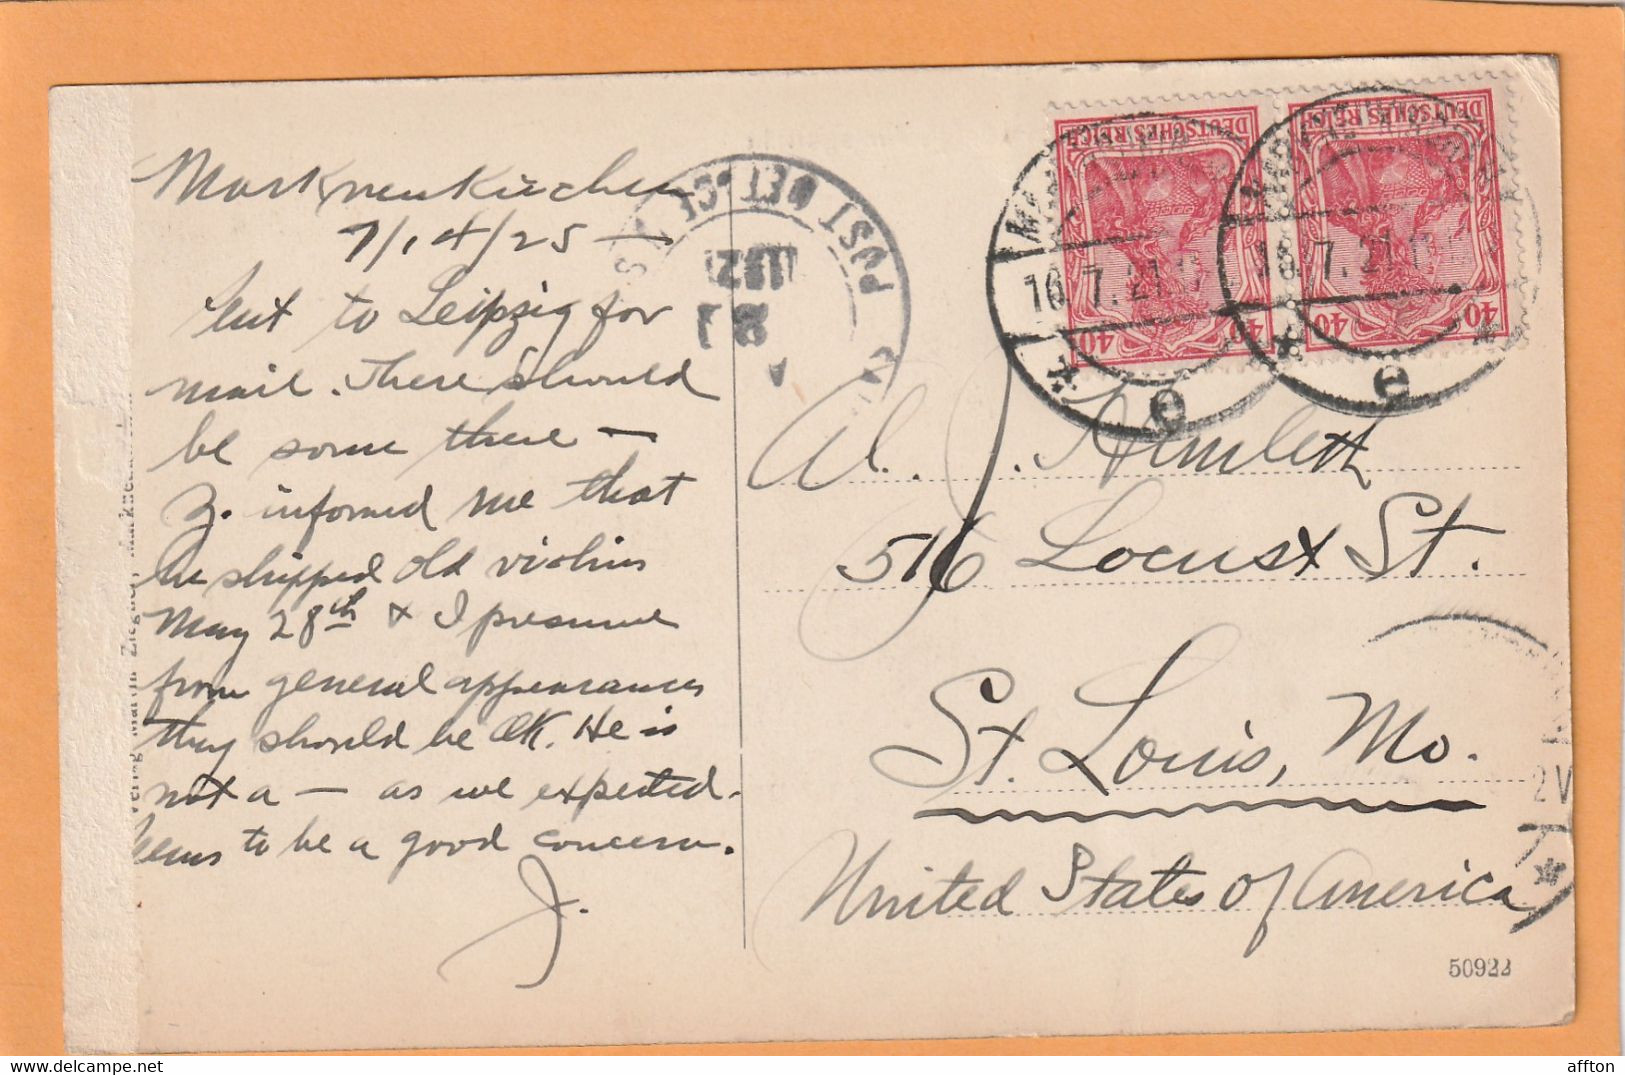 Markneukirchen
7/14/25 —
Sent to Leipzig for
mail. There should
be some there —
Z. informed me that
he shipped old violins
May 28th & I presume
from general appearances
they should be OK. He is
not a — as we expected.
Seems to be a good concern.
J.
Verlag Martin Ziegner, Markneukirchen
POST
DEUTSCHES REICH
40 40
DEUTSCHES REICH
40 40
16.7.21
16.7.21
e
e
Al. J.
516 Locust St.
St. Louis, Mo.
United States of America
affton